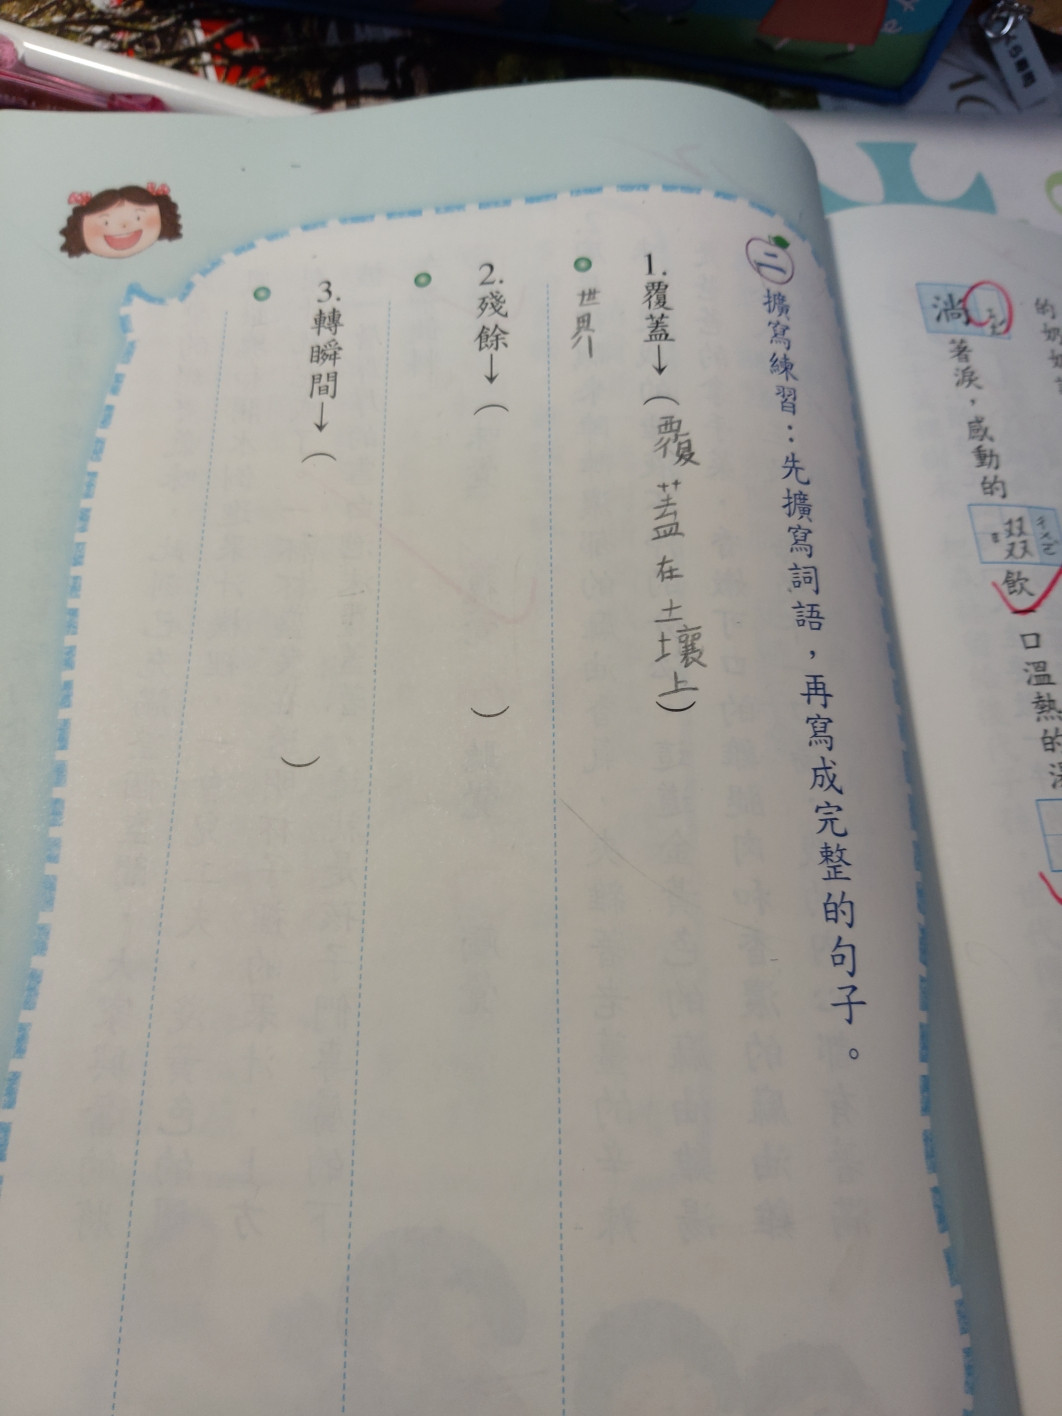 的奶奶
淌
著淚,感動的
飲
口溫熱的湯
二 擴寫練習:先擴寫詞語,再寫成完整的句子。
1.覆蓋→(覆蓋在土壤上)
世界
2.殘餘→( )
3.轉瞬間→( )